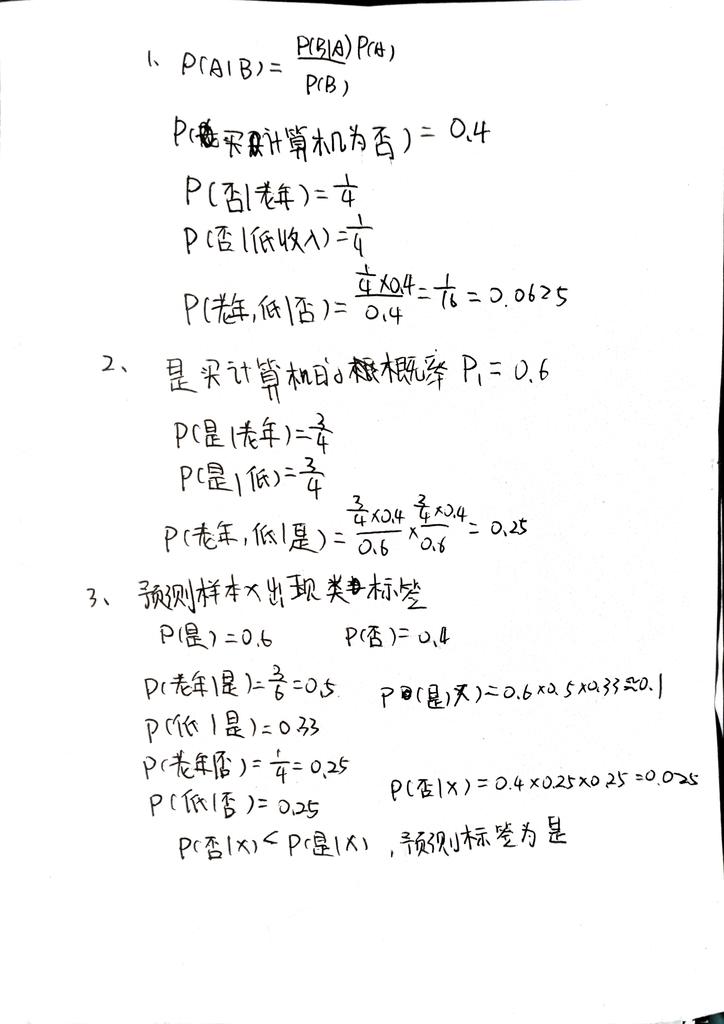 1、 P(A|B)= P(B|A)P(A) / P(B)
P(买计算机为否)=0.4
P(否|老年)=1/4
P(否|低收入)=1/4
P(老年,低|否)= 1/4×0.4 / 0.4 = 1/16 = 0.0625
2、 是买计算机的概率 P₁=0.6
P(是|老年)=3/4
P(是|低)=3/4
P(老年,低|是)= 3/4×0.4 / 0.6 × 3/4×0.4 / 0.6 = 0.25
3、 预测样本X出现类标签
P(是)=0.6 P(否)=0.4
P(老年|是)=3/6=0.5 P(是|X)=0.6×0.5×0.33≈0.1
P(低|是)=0.33
P(老年|否)=1/4=0.25
P(低|否)=0.25 P(否|X)=0.4×0.25×0.25=0.025
P(否|X)<P(是|X),预测标签为是